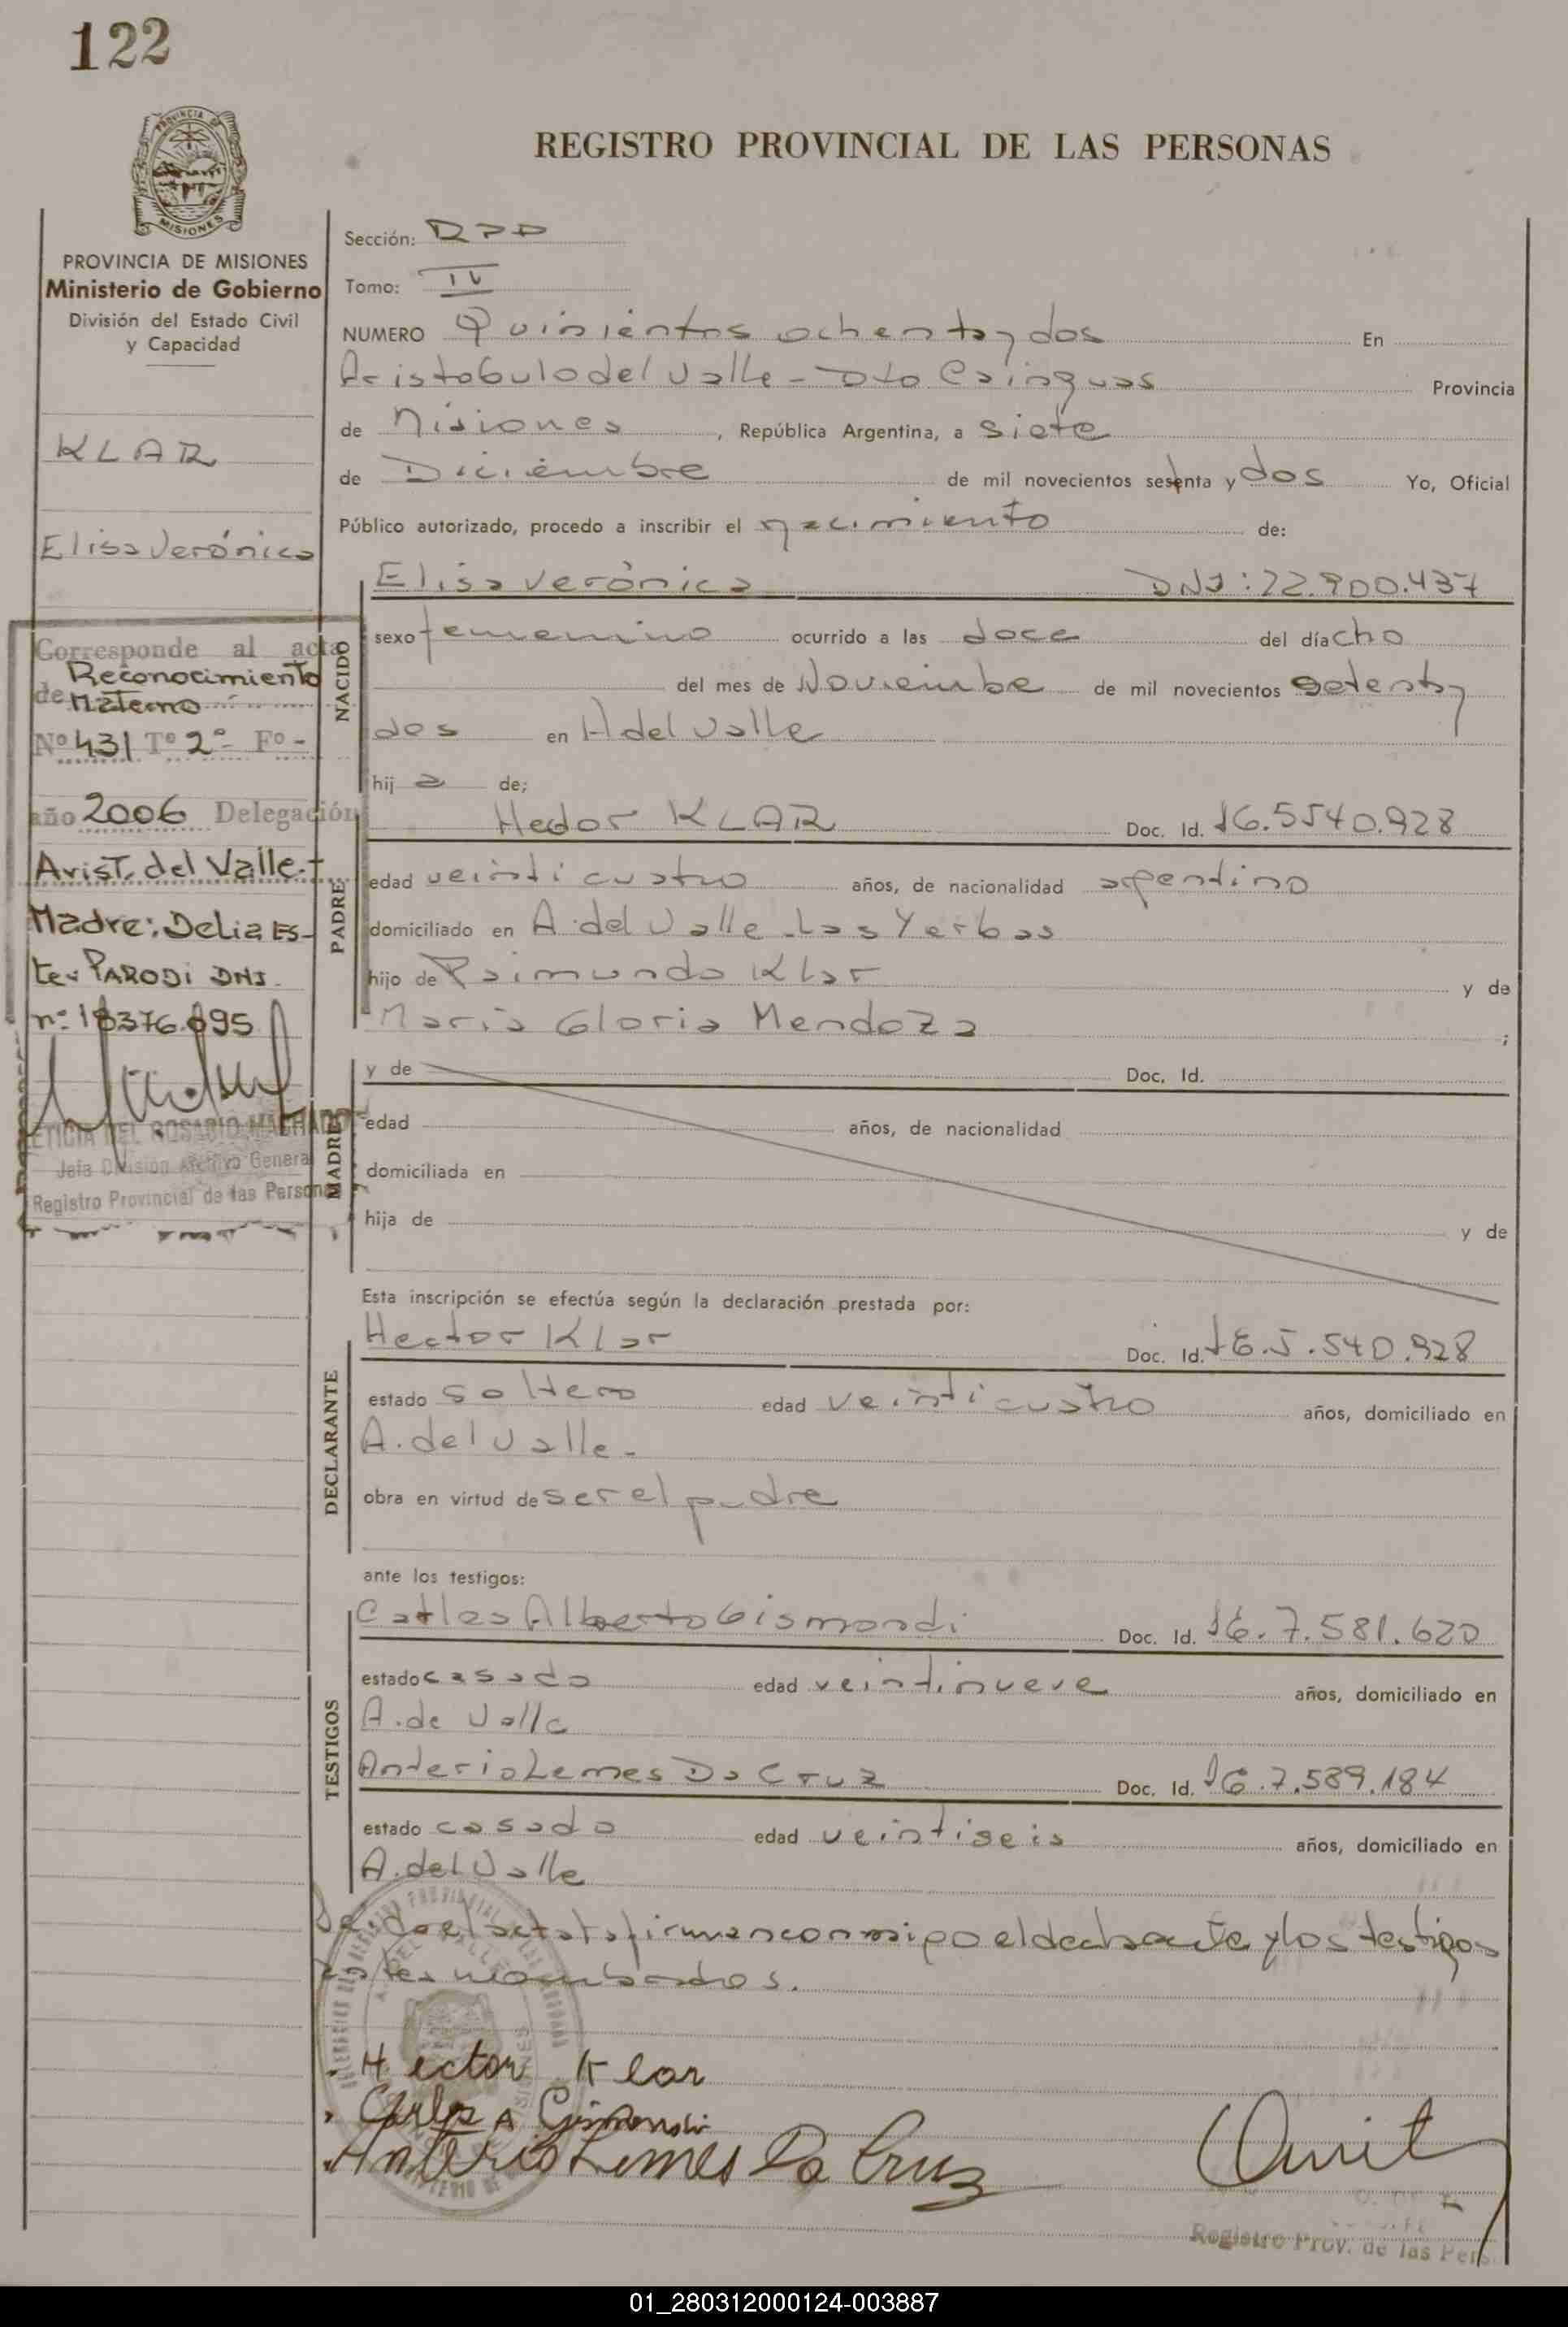 122
REGISTRO PROVINCIAL DE LAS PERSONAS
PROVINCIA DE
MISIONES
PROVINCIA DE MISIONES
Ministerio de Gobierno
División del Estado Civil
y Capacidad
KLAR
Elisa Verónica
Corresponde al acta
de Reconocimiento
Materno
Nº 431 Tº 2º- Fº -
año 2006 Delegación
Arist. del Valle.-
Madre: Delia Es-
ter PARODI DNI.
nº: 18376.695
LETICIA DEL ROSARIO MACHADO
Jefa División Archivo General
Registro Provincial de las Personas
Sección: DPD
Tomo: IV
NUMERO Quinientos ochenta y dos En
Aristobulo del Valle - Dto Cainguas Provincia
de Misiones, República Argentina, a siete
de Diciembre de mil novecientos sesenta y dos Yo, Oficial
Público autorizado, procedo a inscribir el nacimiento de:
NACIDO
Elisa Verónica DNI: 22.900.437
sexo femenino ocurrido a las doce del día ocho
del mes de Noviembre de mil novecientos setenta y
dos en A del Valle
hij a de;
PADRE
Hector KLAR Doc. Id. I6.5540.928
edad veinticuatro años, de nacionalidad argentino
domiciliado en A. del Valle - Las Yerbas
hijo de Raimundo Klar y de
Maria Gloria Mendoza ;
MADRE
y de Doc. Id.
edad años, de nacionalidad
domiciliada en
hija de y de
Esta inscripción se efectúa según la declaración prestada por:
DECLARANTE
Hector Klar Doc. Id. I6.5.540.928
estado soltero edad veinticuatro años, domiciliado en
A. del Valle -
obra en virtud de ser el padre
ante los testigos:
TESTIGOS
Carlos Alberto Gismondi Doc. Id. I6.7.581.620
estado casado edad veintinueve años, domiciliado en
A. de Valle
Anterio Lemes Da Cruz Doc. Id. I6.7.589.184
estado casado edad veintiseis años, domiciliado en
A. del Valle
Leida el acta la firman conmigo el declarante y los testigos
antes nombrados.
Hector Klar
Carlos A Gismondi
Anterio Lemes Da Cruz
Registro Prov. de las Pers.
01_280312000124-003887